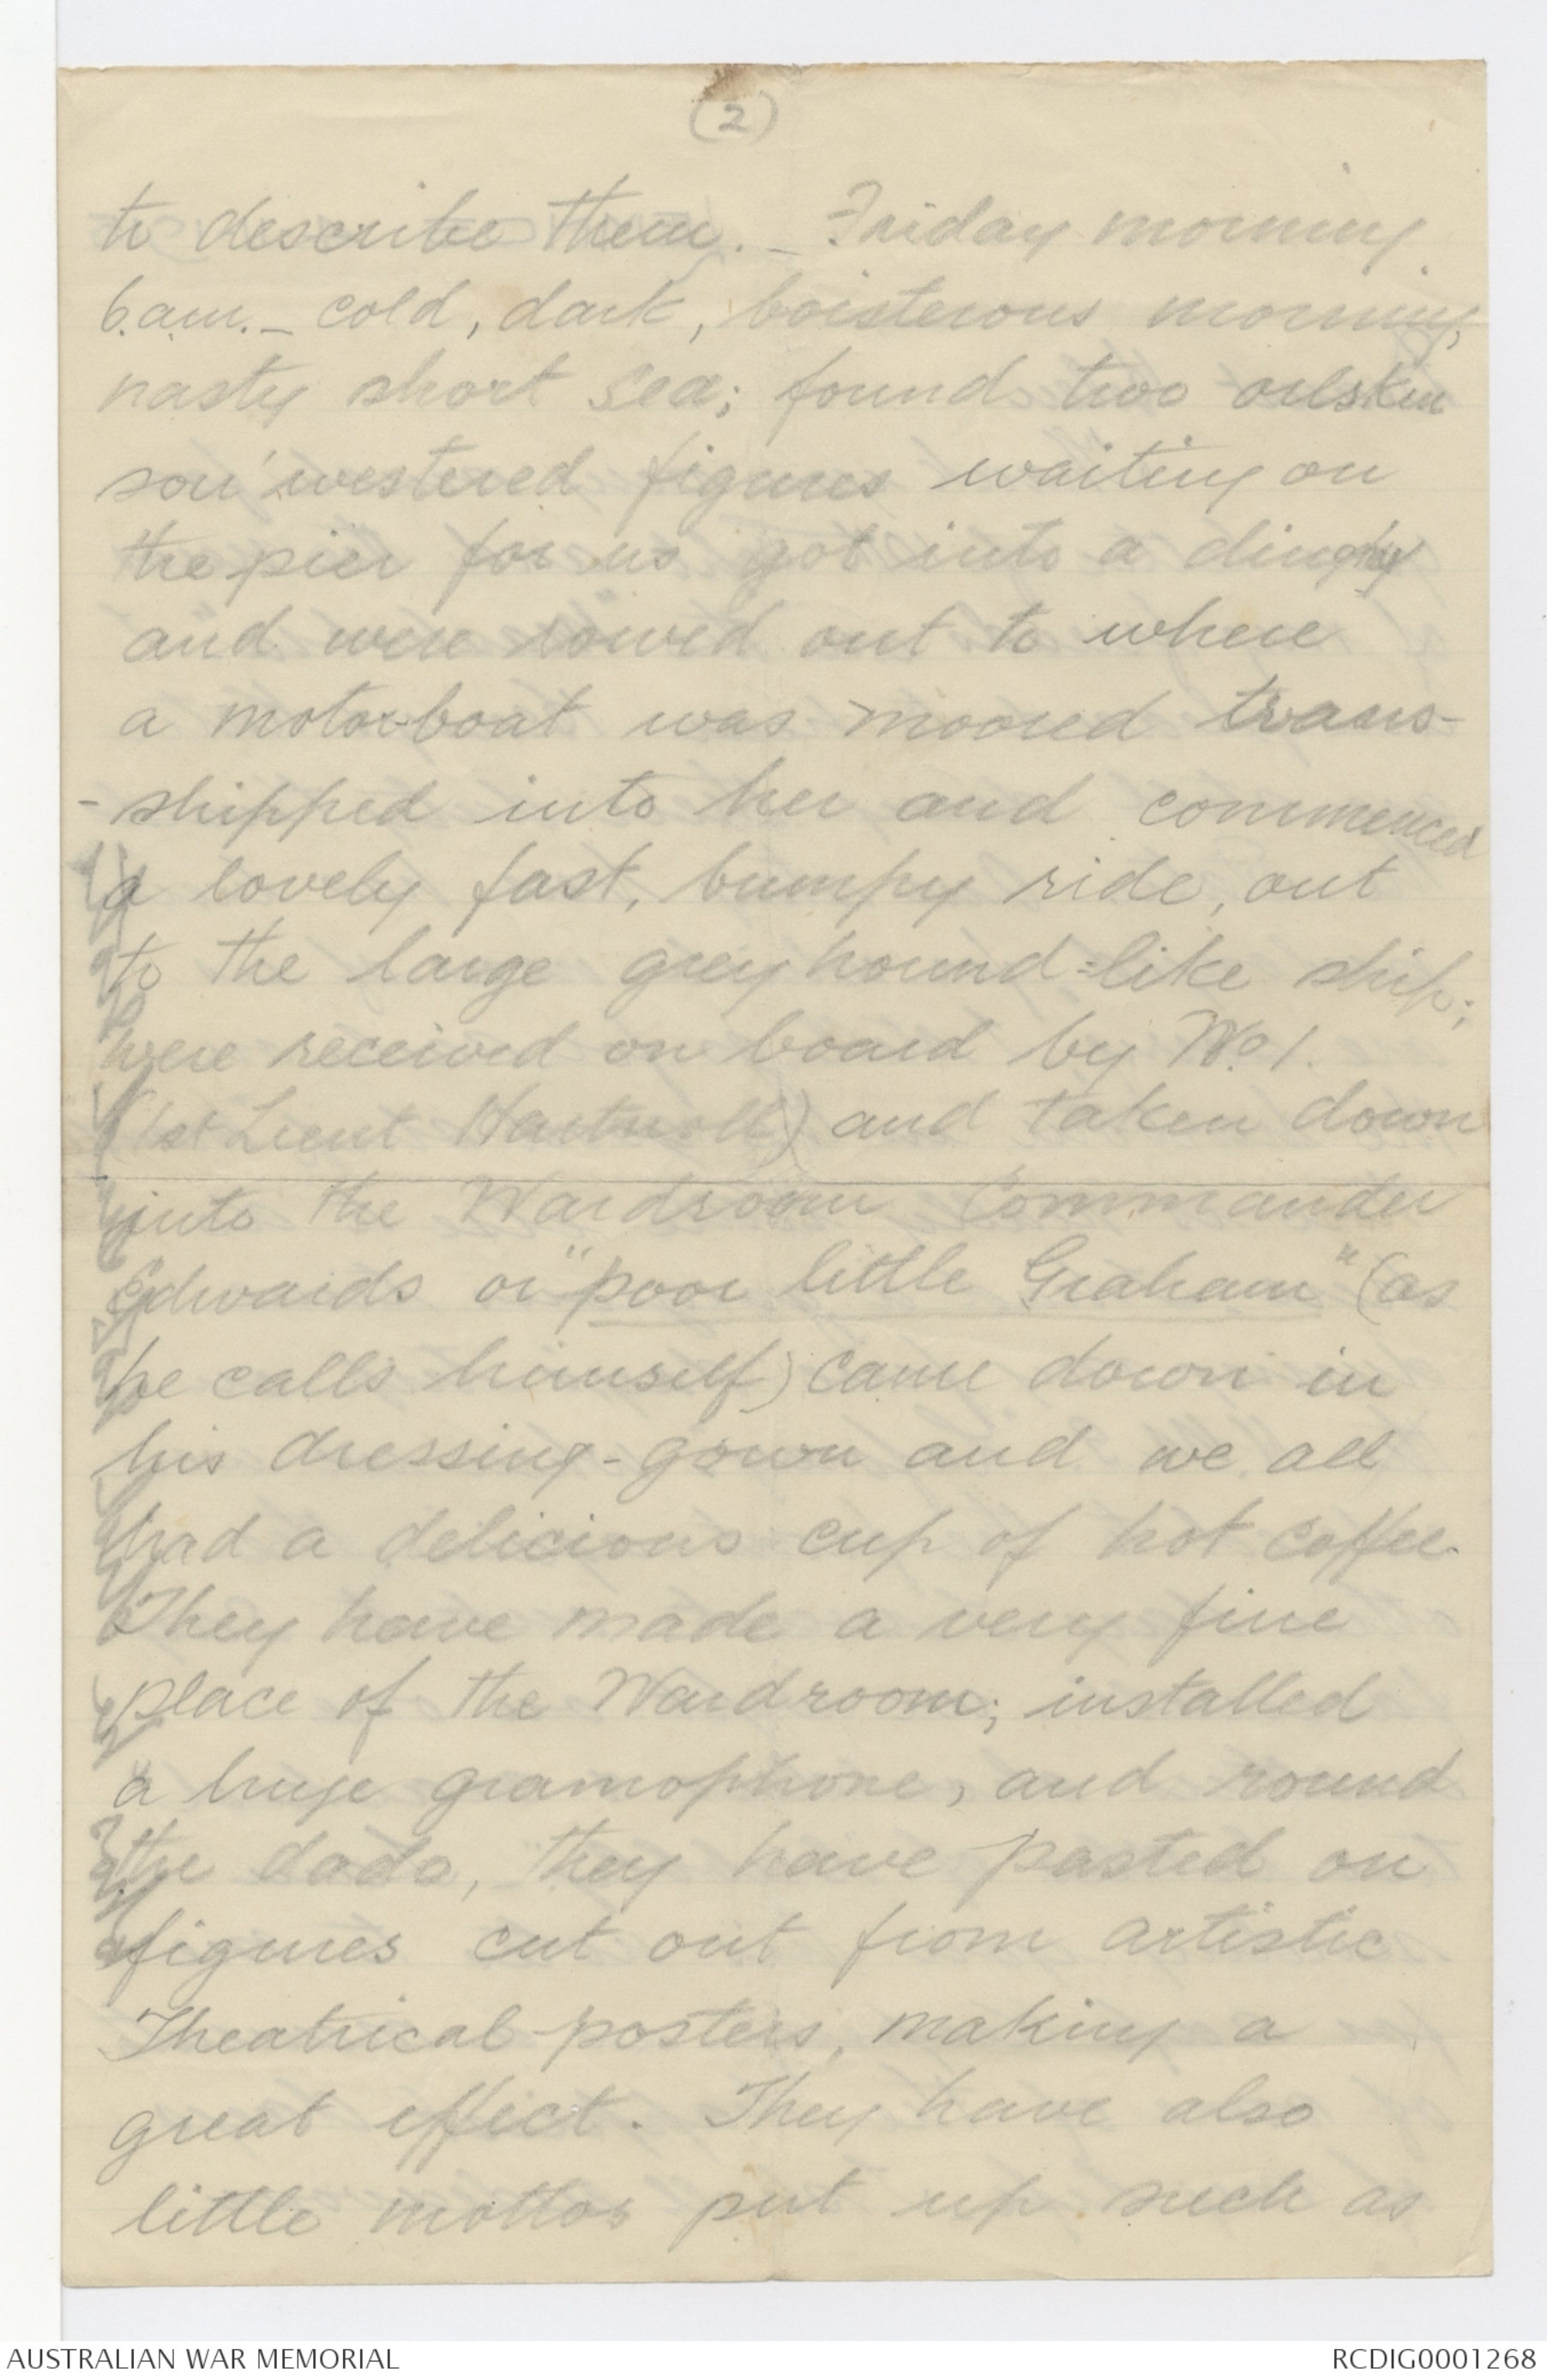 (2)
to describe them. - Friday morning
6.am. - cold, dark, boisterous morning,
nasty short sea; found two oilskin
sou'westered figures waiting on
the pier for us got into a dinghy
and were rowed out to where
a motor-boat was moored trans-
-shipped into her and commenced
a lovely fast, bumpy ride, out
to the large greyhound=like ship;
were received on board by No. 1.
(1st Lieut Hartnell) and taken down
into the Wardroom Commander
Edwards or "poor little Graham" (as
he calls himself) came down in
his dressing-gown and we all
had a delicious cup of hot coffee.
They have made a very fine
place of the Wardroom; installed
a huge gramophone, and round
the dado, they have pasted on
figures cut out from artistic
Theatrical posters, making a
great effect. They have also
little mottos put up such as
AUSTRALIAN WAR MEMORIAL
RCDIG0001268